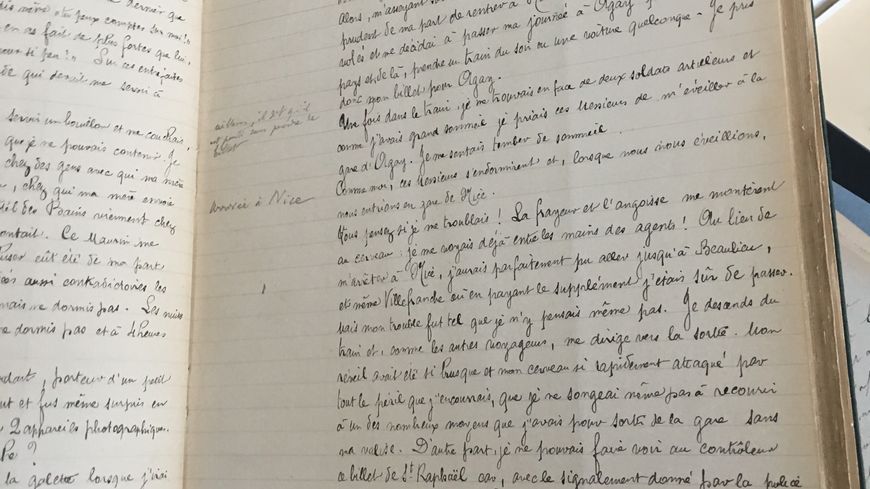 dernier que
sur moi !"
en as fait de plus fortes que lui,
Sur ces entrefaites
qui devait me servir à
servir un bouillon et me couchais,
que je ne pouvais contenir. Je
chez des gens avec qui ma mère
, chez qui ma mère envoie
des Bains viennent chez
contait. Ce Maurin me
eut été de ma part
aussi contradictoires les
mais ne dormis pas. Les nuits
ne dormis pas et à 4 heures
, porteur d'un petit
et fus même surpris en
2 appareils photographiques.
?
la galette lorsque j'irai
il dit qu'il
billet
arrivée à Nice
alors, m'assoyant
prudent de ma part de rentrer à
volés et me décidai à passer ma journée à Agay
pays et de là, prendre un train du soir ou une voiture quelconque. Je pris
donc mon billet pour Agay.
Une fois dans le train, je me trouvais en face de deux soldats artilleurs et
comme j'avais grand sommeil je priais ces Messieurs de m'éveiller à la
gare d'Agay. Je me sentais tomber de sommeil.
Comme moi, ces Messieurs s'endormirent et, lorsque nous nous éveillions,
nous entrions en gare de Nice.
Vous pensez si je me troublais ! La frayeur et l'angoisse me montèrent
au cerveau : je me voyais déjà entre les mains des agents ! Au lieu de
m'arrêter à Nice, j'aurais parfaitement pu aller jusqu'à Beaulieu,
et même Villefranche où en payant le supplément j'étais sûr de passer.
mais mon trouble fut tel que je n'y pensais même pas. Je descends du
train et, comme les autres voyageurs, me dirige vers la sortie. Mon
réveil avait été si brusque et mon cerveau si rapidement attaqué par
tout le péril que j'encourais, que je ne songeai même pas à recourir
à un des nombreux moyens que j'avais pour sortir de la gare sans
ma valise. D'autre part, je ne pouvais faire voir au contrôleur
ce billet de St Raphaël car, avec le signalement donné par la police